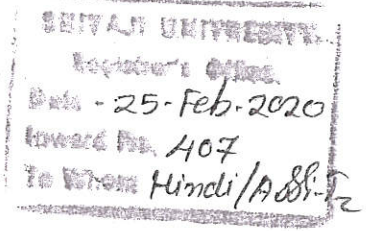 SHIVAJI UNIVERSITY
Registrar's Office
Date - 25-Feb-2020
Inward No. 407
To Whom Hindi/